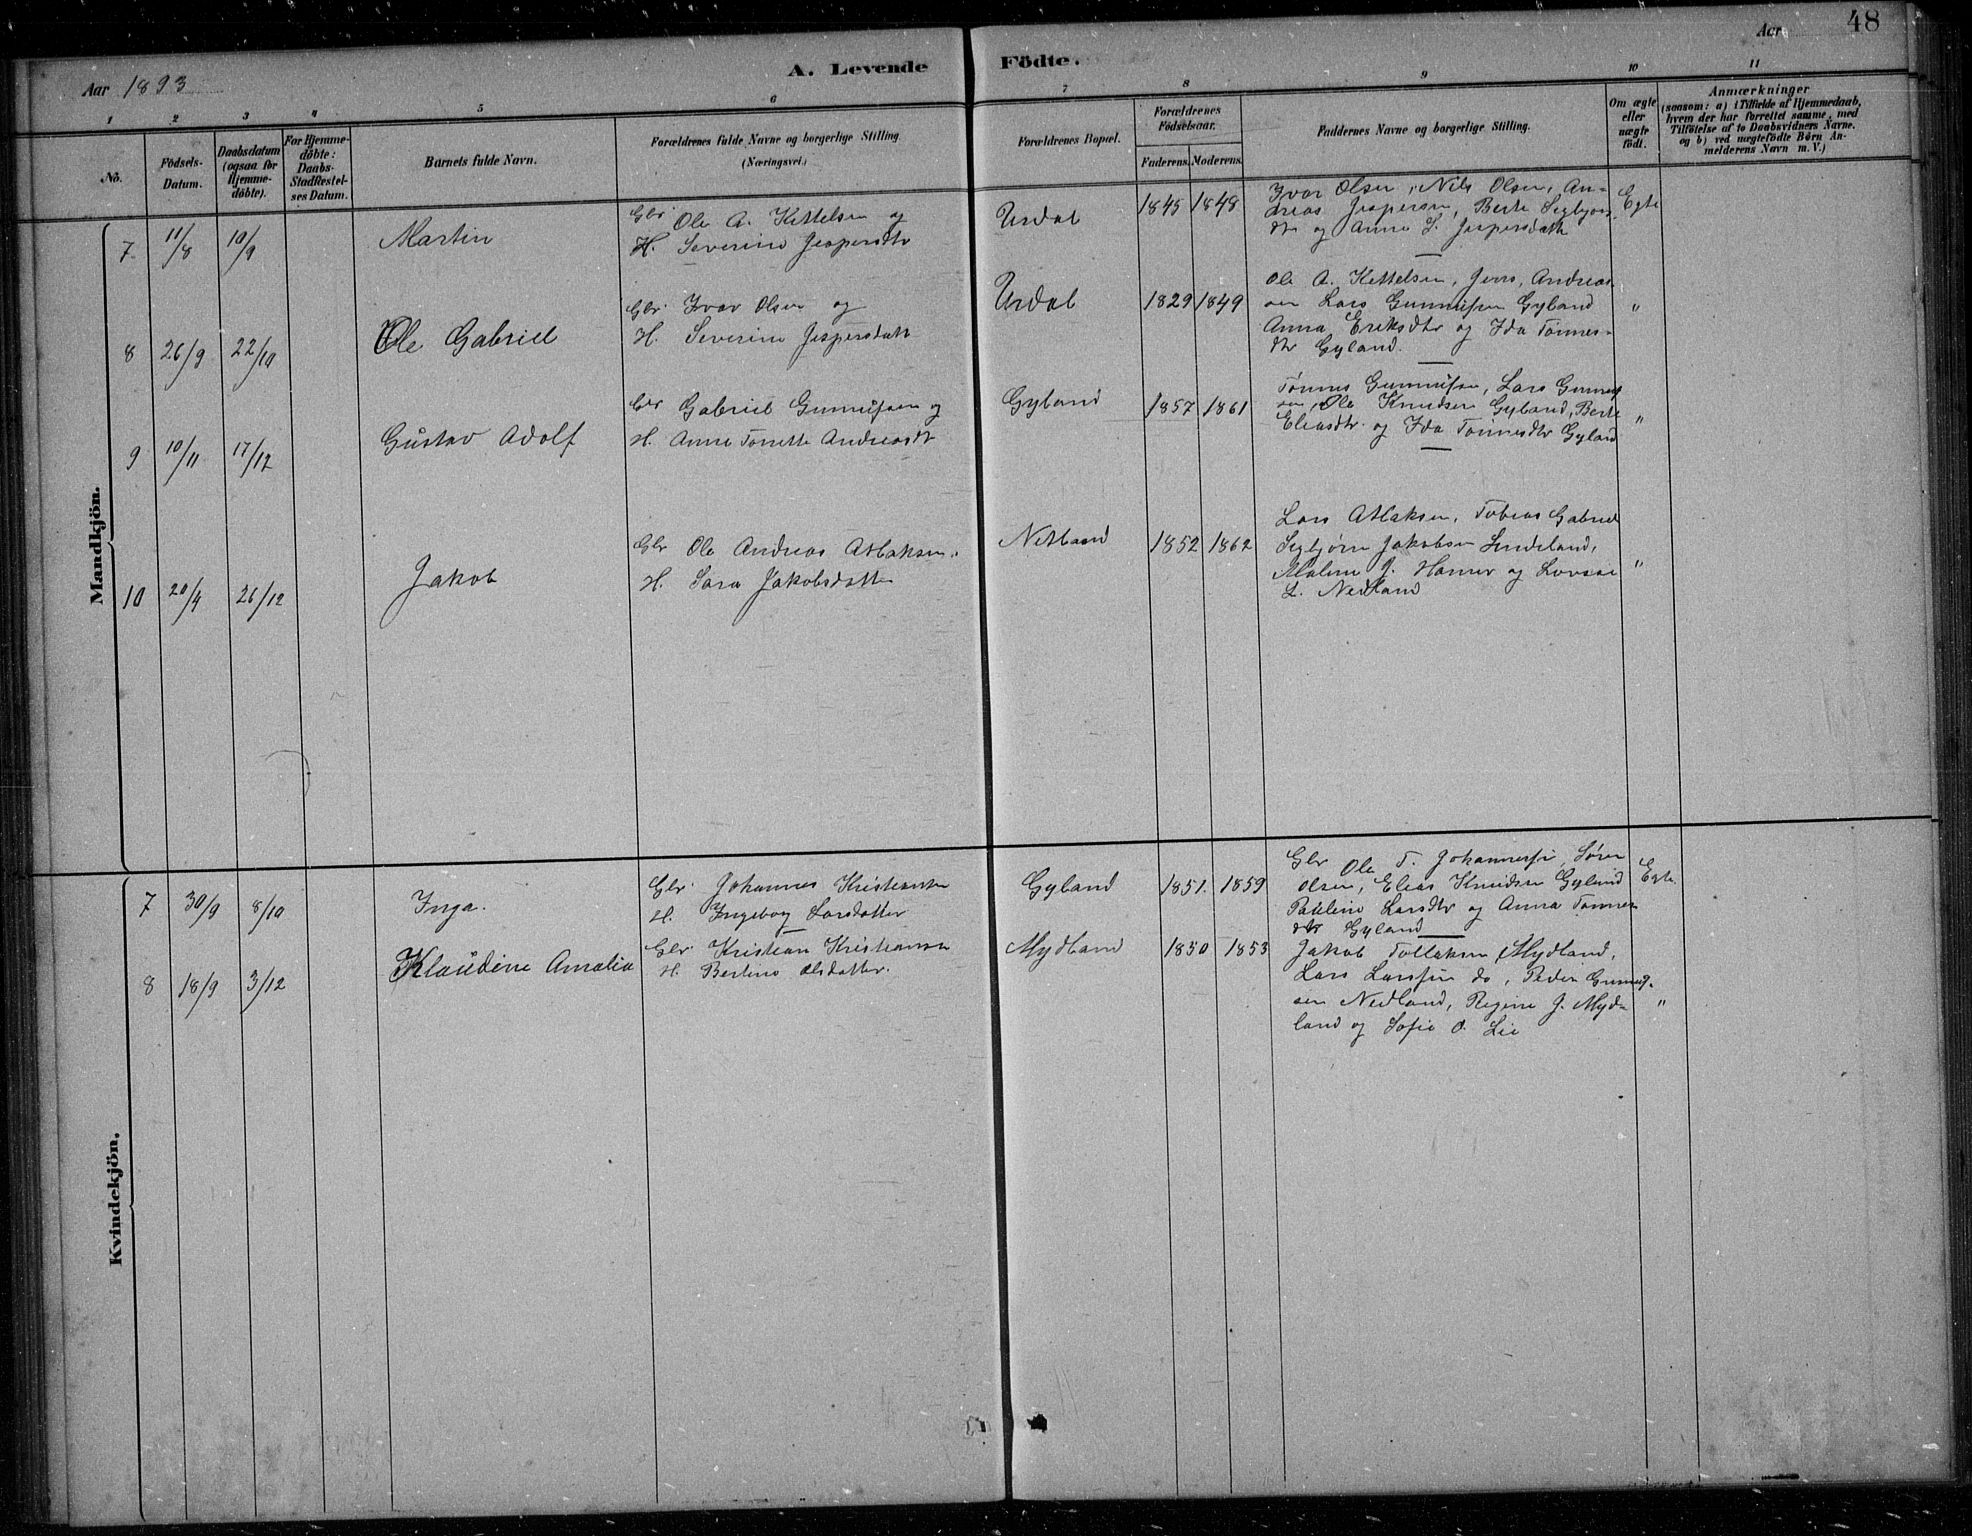 48
Aar 1893
A. Levende Födte.
Aar
1 2 3 4 5 6 7 8 9 10 11
No.
Födsels-
Datum.
Daabsdatum
(ogsaa for
Hjemme-
döbte).
For Hjemme-
döbte:
Daabs-
Stadfæstel-
ses Datum.
Barnets fulde Navn.
Forældrenes fulde Navne og borgerlige Stilling.
(Næringsvei.)
Forældrenes Bopæl.
Forældrenes
Födselsaar.
Faderens. Moderens.
Faddernes Navne og borgerlige Stilling.
Om ægte
eller
uægte
födt.
Anmærkninger
(saasom: a) i Tilfælde af Hjemmedaab,
hvem der har forrettet samme, med
Tilföielse af to Daabsvidners Navne,
og b) ved uægtefödte Börn An-
melderens Navn m. V.)
Mandkjön.
7 11/8 10/9 Martin
Gbr Ole A. Kettelsen og
H. Severine Jespersdtr
Urdal 1845 1848
Ivar Olsen, Nils Olsen, An-
dreas Jespersen, Berte Sigbjørs
dtr og Anna S. Jespersdatt
Egte
8 26/9 22/10 Ole Gabriel
Gbr Ivar Olsen og
H. Severine Jespersdatt
Urdal 1829 1849
Ole A. Kettelsen, Jens, Andreas
sen Lars Gunnufsen Gyland
Anna Eriksdtr og Ida Tønnes-
dtr Gyland.
"
9 10/11 17/12 Gustav Adolf
Gbr Gabriel Gunnufsen og
H. Anne Tonette Andreasdtr
Gyland 1857 1861
Tønnes Gunnufsen, Lars Gunnuf
sen, Ole Knudsen Gyland, Berte
Eliasdtr og Ida Tønnesdtr Gyland
"
10 20/4 26/12 Jakob
Gbr Ole Andreas Atlaksen
H. Sara Jakobsdatter
Netland 1852 1862
Lars Atlaksen, Tobias Gabriel
Sigbjørn Jakobsen Lindeland,
Malene J. Hamer og Lovise
L. Nedland
"
Kvindekjön.
7 30/9 8/10 Inga.
Gbr Johannes Kristiansen
H. Ingeborg Larsdatter
Gyland 1851. 1859
Gbr Ole T. Johannesen, Søren
Olsen, Elias Knudsen Gyland
Pauline Larsdtr og Anna Tønnes
dtr Gyland
Egte.
8 18/9 3/12 Klaudine Amalia
Gbr Kristian Kristiansen
H. Bertine Olsdatter.
Mydland 1850 1853
Jakob Tollaksen Mydland,
Lars Larsen do, Peder Gunnuf-
sen Nedland, Regine J. Myd-
land og Sofie O. Lie
"